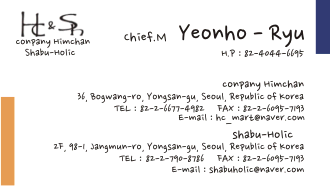 Hc & Sh
conpany Himchan
Shabu-Holic
chief.M Yeonho - Ryu
H.P : 82-4044-6695
conpany Himchan
36, Bogwang-ro, Yongsan-gu, Seoul, Republic of Korea
TEL : 82-2-6677-4982 FAX : 82-2-6095-7193
E-mail : hc_mart@naver.com
shabu-Holic
2F, 98-1, Jangmun-ro, Yongsan-gu, Seoul, Republic of Korea
TEL : 82-2-790-8786 FAX : 82-2-6095-7193
E-mail : shabuholic@naver.com